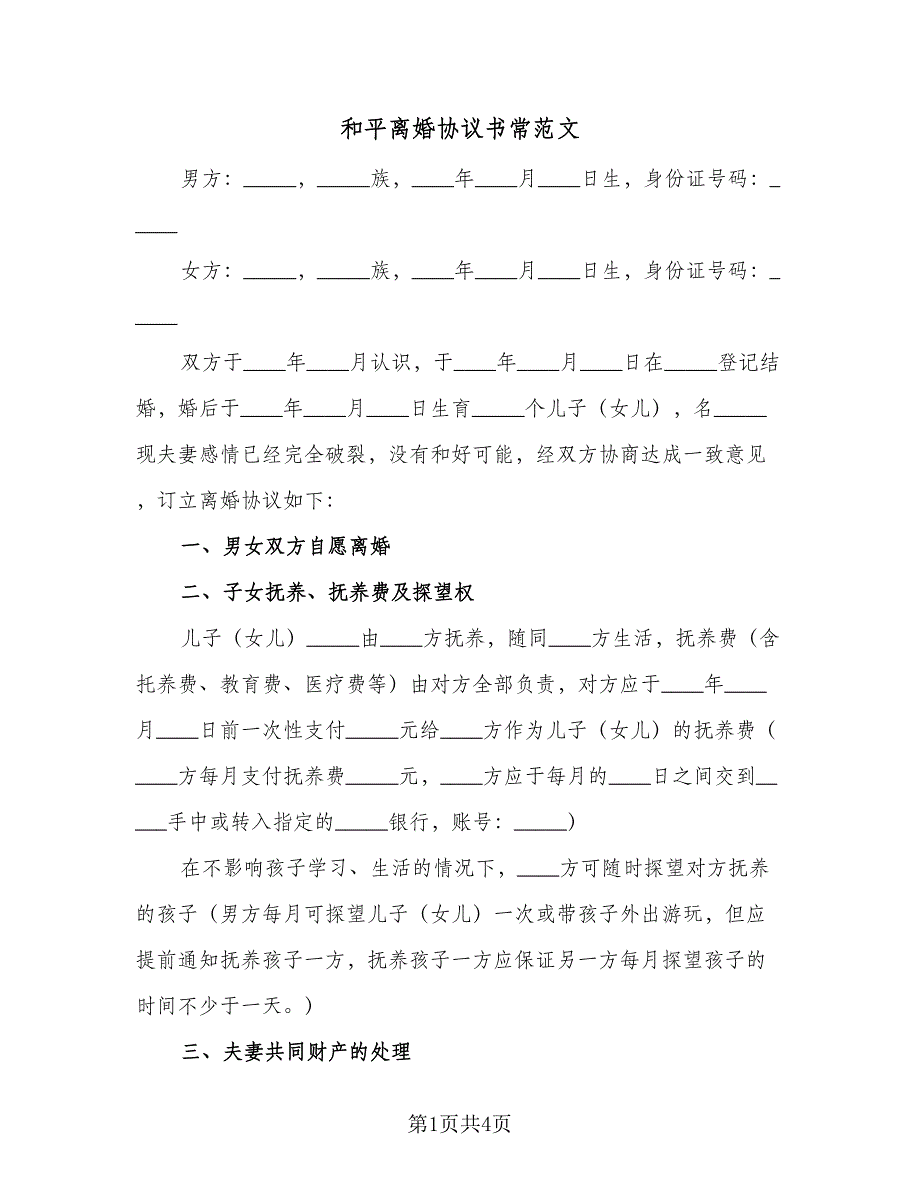 和平离婚协议书常范文
男方：_____，_____族，____年____月____日生，身份证号码：_
____
女方：_____，_____族，____年____月____日生，身份证号码：_
____
双方于____年____月认识，于____年____月____日在_____登记结
婚，婚后于____年____月____日生育_____个儿子（女儿），名_____
现夫妻感情已经完全破裂，没有和好可能，经双方协商达成一致意见
，订立离婚协议如下：
一、男女双方自愿离婚
二、子女抚养、抚养费及探望权
儿子（女儿）_____由____方抚养，随同____方生活，抚养费（含
托养费、教育费、医疗费等）由对方全部负责，对方应于____年____
月____日前一次性支付_____元给____方作为儿子（女儿）的抚养费（
____方每月支付抚养费_____元，____方应于每月的____日之间交到__
___手中或转入指定的_____银行，账号：_____）
在不影响孩子学习、生活的情况下，____方可随时探望对方抚养
的孩子（男方每月可探望儿子（女儿）一次或带孩子外出游玩，但应
提前通知抚养孩子一方，抚养孩子一方应保证另一方每月探望孩子的
时间不少于一天。）
三、夫妻共同财产的处理
第1页共4页